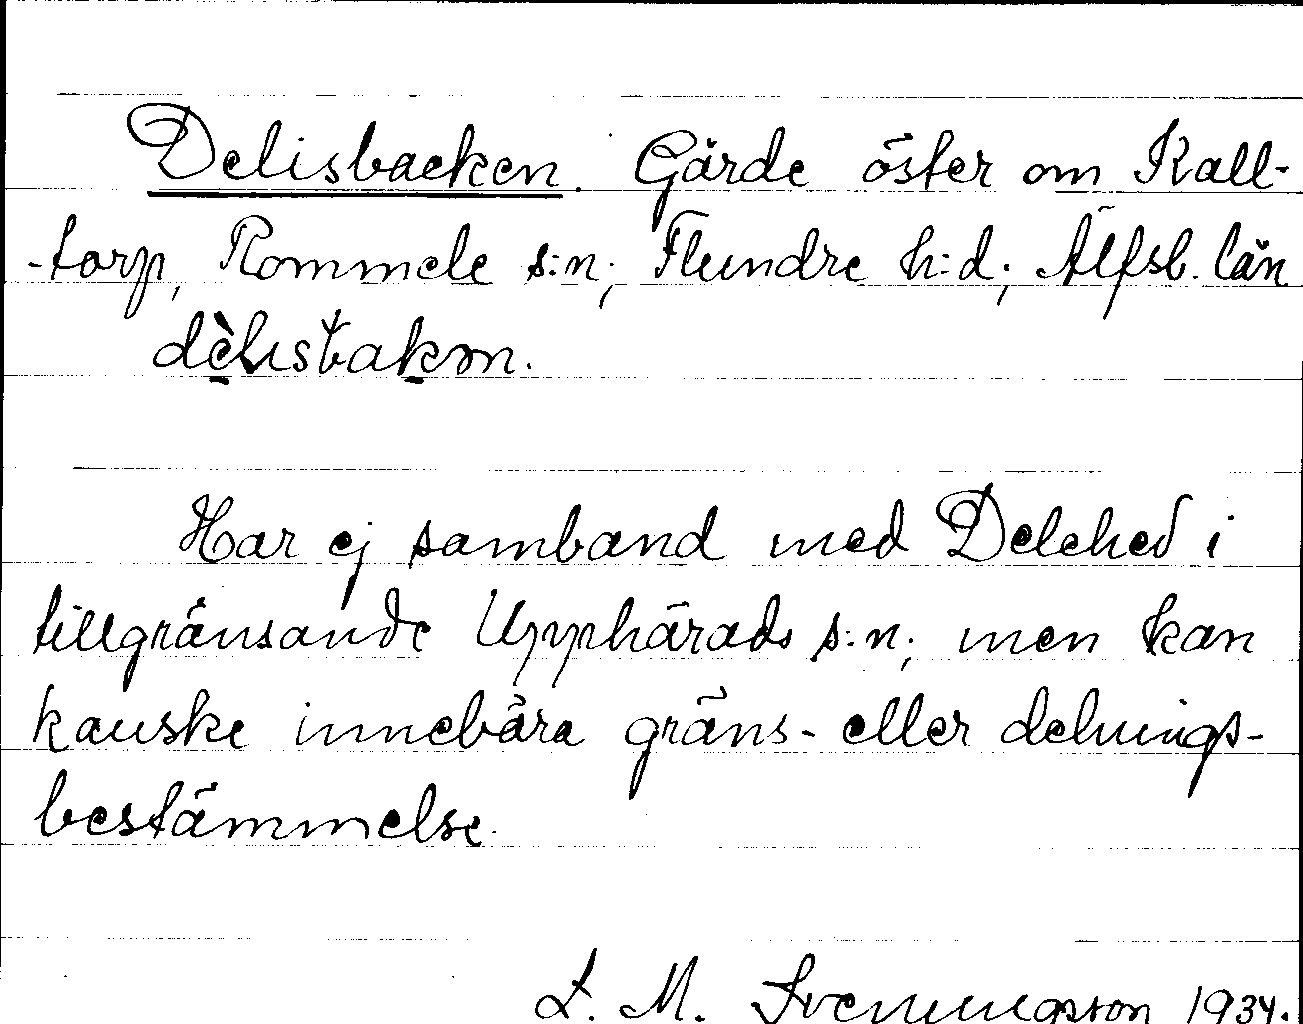 Delisbacken. Gärde öster om Kall-
-torp, Rommele s:n; Flundre h:d; Älfsb. län
Har ej samband med Delehed i
tillgränsande Upphärads s:n; men kan
kanske innebära gräns- eller delnings-
bestämmelse.
L. M. Svenungsson 1934.